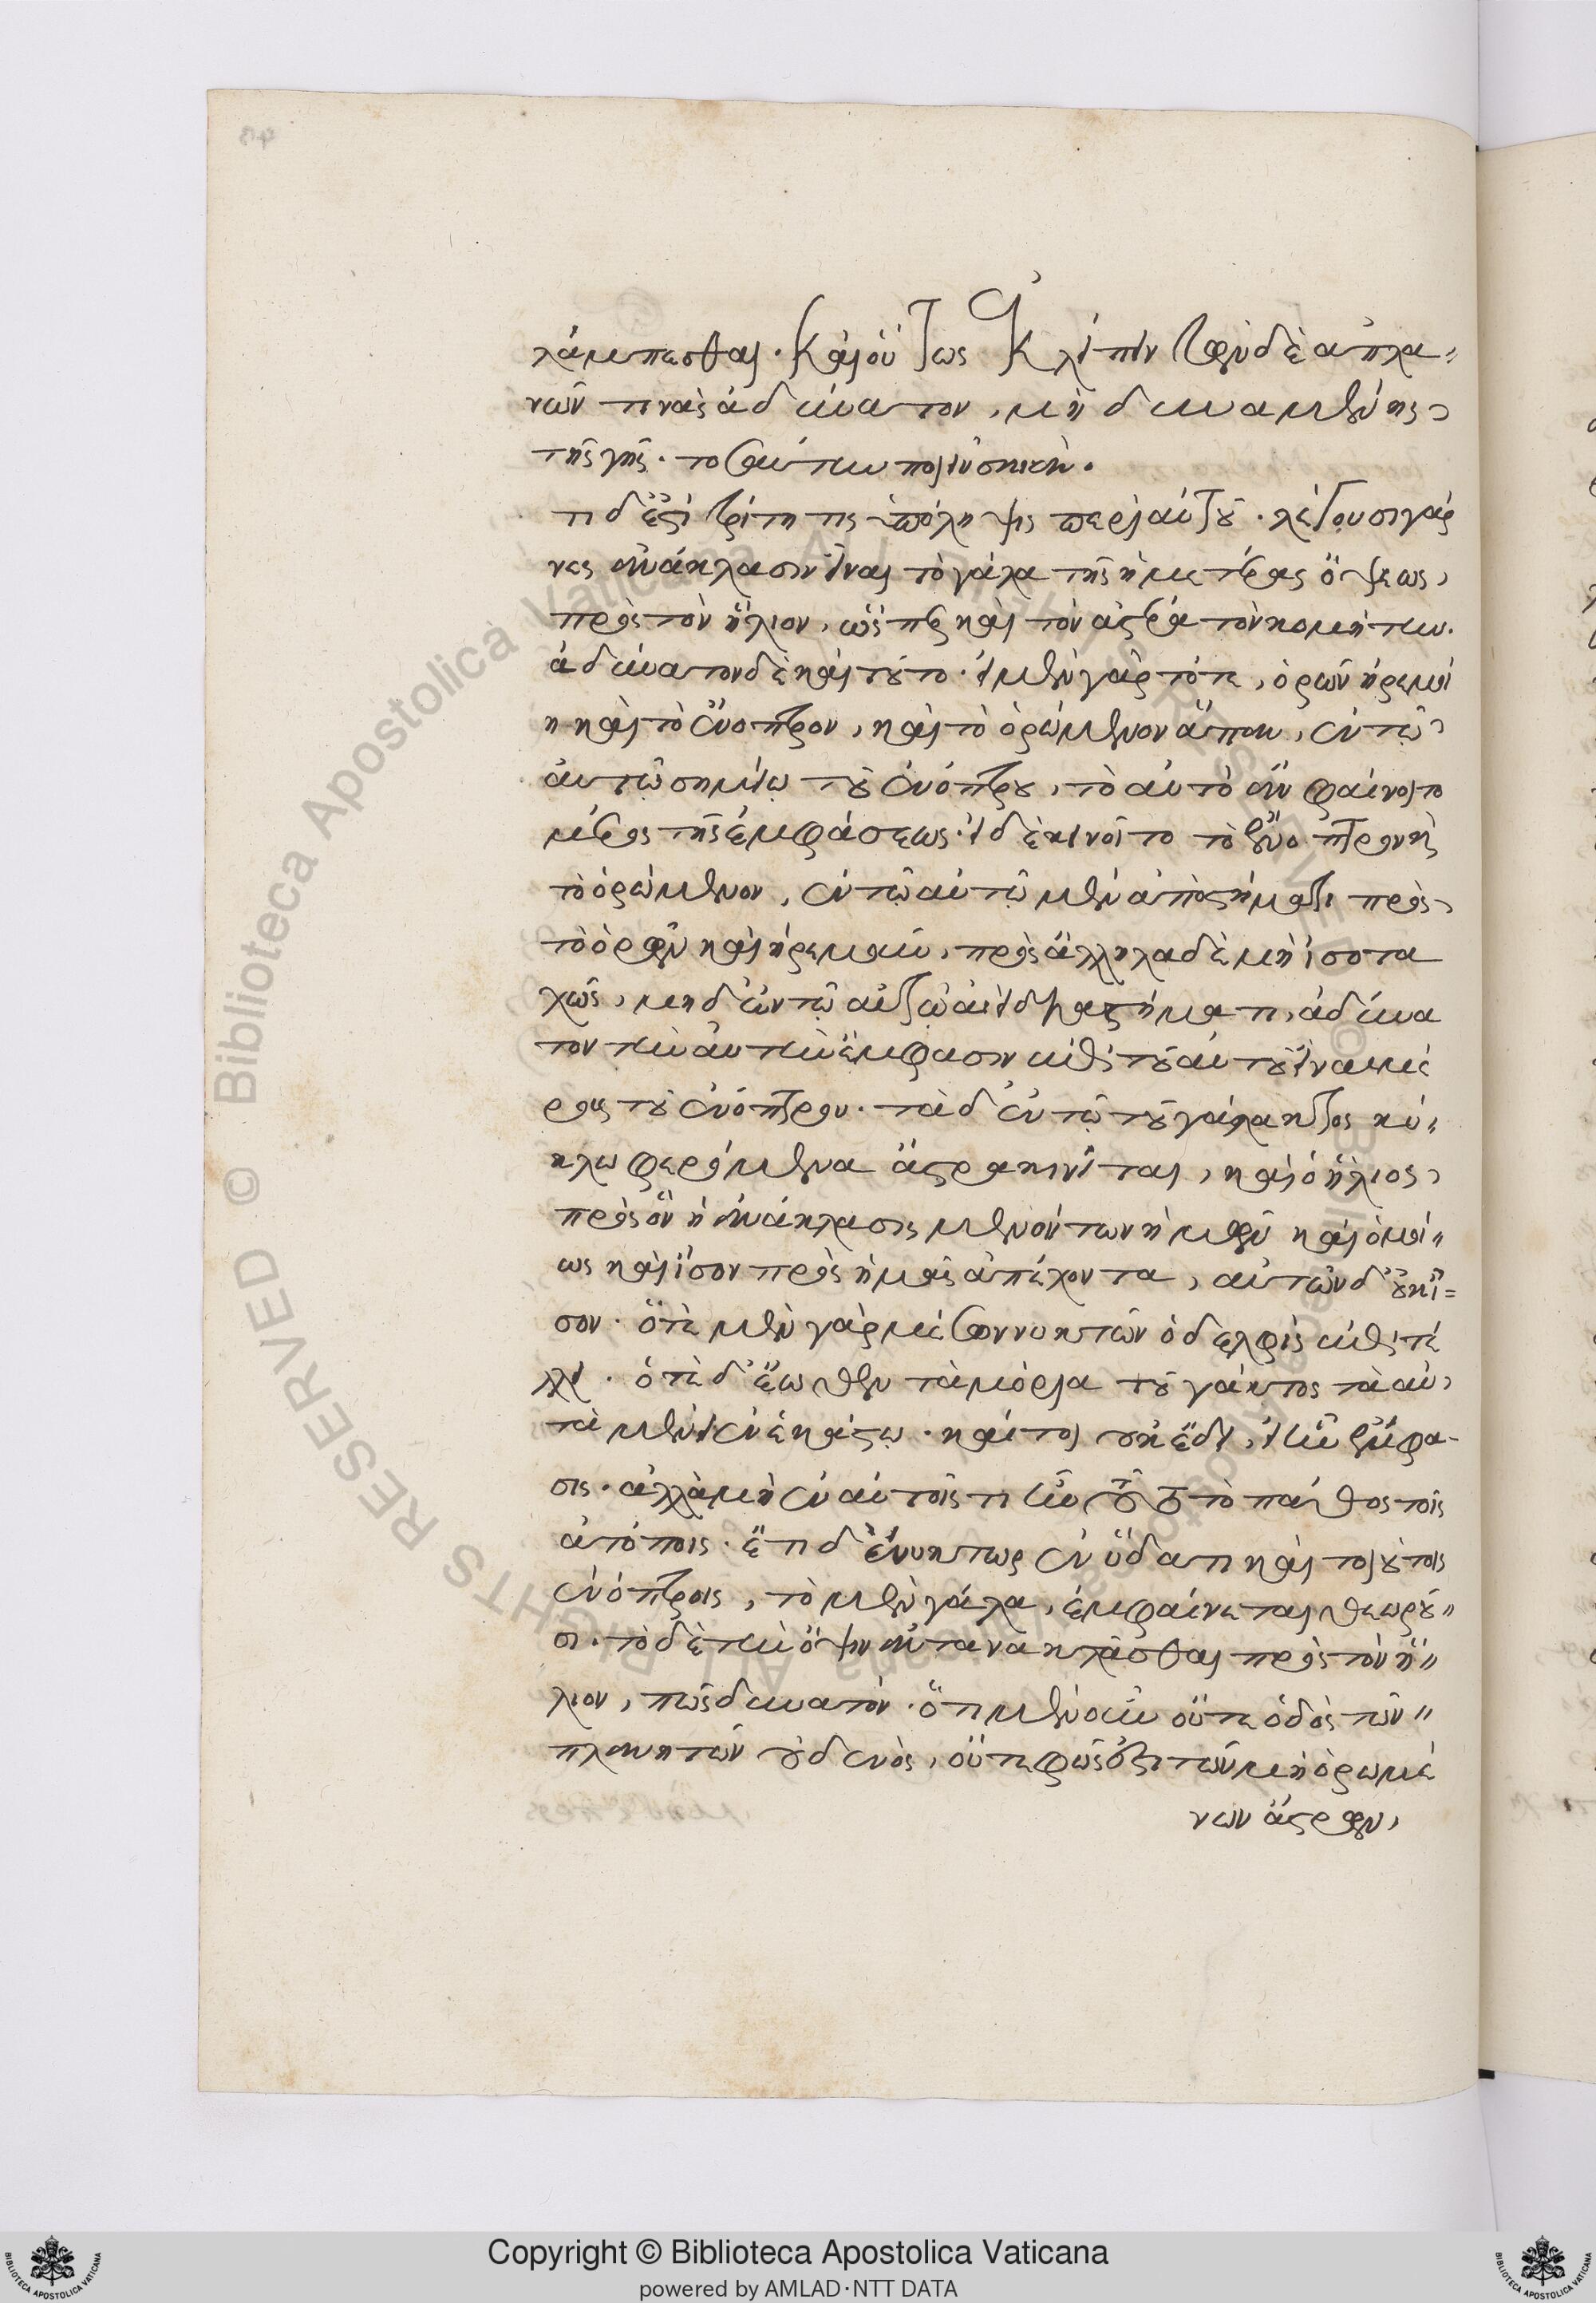 λάμπεσθαι. καὶ οὕτως ἐκλείπειν τῶν δὲ ἀπλα=
νῶν τινὰς ἀδύνατον, μὴ δυναμένης
τῆς γῆς. τοσαύτην ποιεῖν σκιὰν.
τι δ' ἐστὶ τρίτη τις ὑπόληψις περὶ αὐτοῦ. λέγουσι γάρ
νες ἀνάκλασιν εἶναι τὸ γάλα τῆς ἡμετέρας ὄψεως,
πρὸς τὸν ἥλιον, ὥσπερ καὶ τὸν ἀστέρα τὸν κομήτην.
ἀδύνατον δὲ καὶ τοῦτο. εἰ μὲν γὰρ τότε, ὁρῶν ἠρεμοί
η καὶ τὸ ἔνοπτρον, καὶ τὸ ὁρώμενον ἅπαν, ἐν τῷ
αὐτῷ σημείῳ τοῦ ἐνόπτρου, τὸ αὐτὸ ἂν φαίνοιτο
μέρος τῆς ἐμφάσεως. εἰ δὲ κινοῖτο τὸ ἔνοπτρον καὶ
τὸ ὁρώμενον, ἐν τῷ αὐτῷ μὲν ἀποστήματι πρὸς
τὸ ὁρῶν καὶ ἠρεμοῦν, πρὸς ἄλληλα δὲ μὴ ἰσοτα
χῶς, μηδ' ἐν τῷ αὐτῷ ἀεὶ διαστήματι, ἀδύνα
τον τὴν αὐτὴν ἔμφασιν ἐπὶ τοῦ αὐτοῦ εἶναι μέ
ρους τοῦ ἐνόπτρου. τὰ δ' ἐν τῷ τοῦ γάλακτος κύ=
κλω φερόμενα ἄστρα κινεῖται, καὶ ὁ ἥλιος,
πρὸς ὃν ἡ ἀνάκλασις μενόντων ἡμῶν καὶ ὁμοί=
ως καὶ ἴσον πρὸς ἡμᾶς ἀπέχοντα, αὐτῶν δ' οὐκ ἴ=
σον. ὅτε μὲν γὰρ μέσων νυκτῶν ὁ δελφὶς ἐπιτέ
λλει. ὁτὲ δ' ἕωθεν τὰ μόρια τοῦ γάκτος τὰ αὐ
τὰ μένει ἐν ἑκάστῳ. καίτοι οὐκ ἔδει, εἰ ἦν ἔμφα-
σις. ἀλλὰ μὴ ἐν αὐτοῖς τι ἦν τοῦτο τὸ πάθος τοῖς
ἀτόποις. ἔτι δὲ νύκτωρ ἐν ὕδατι καὶ τοιούτοις
ἐνόπτροις, τὸ μὲν γάλα, ἐμφαίνεται θεωροῦ=
σι. τὸ δὲ τὴν ὄψιν ἀνακλᾶσθαι πρὸς τὸν ἥ=
λιον, πῶς δυνατόν. ὅτι μὲν οὖν οὔτε ὁδὸς τῶν=
πλανητῶν οὐδενὸς, οὔτε φῶς ἐστι τῶν μὴ ὁρωμέ
νων ἄστρων,